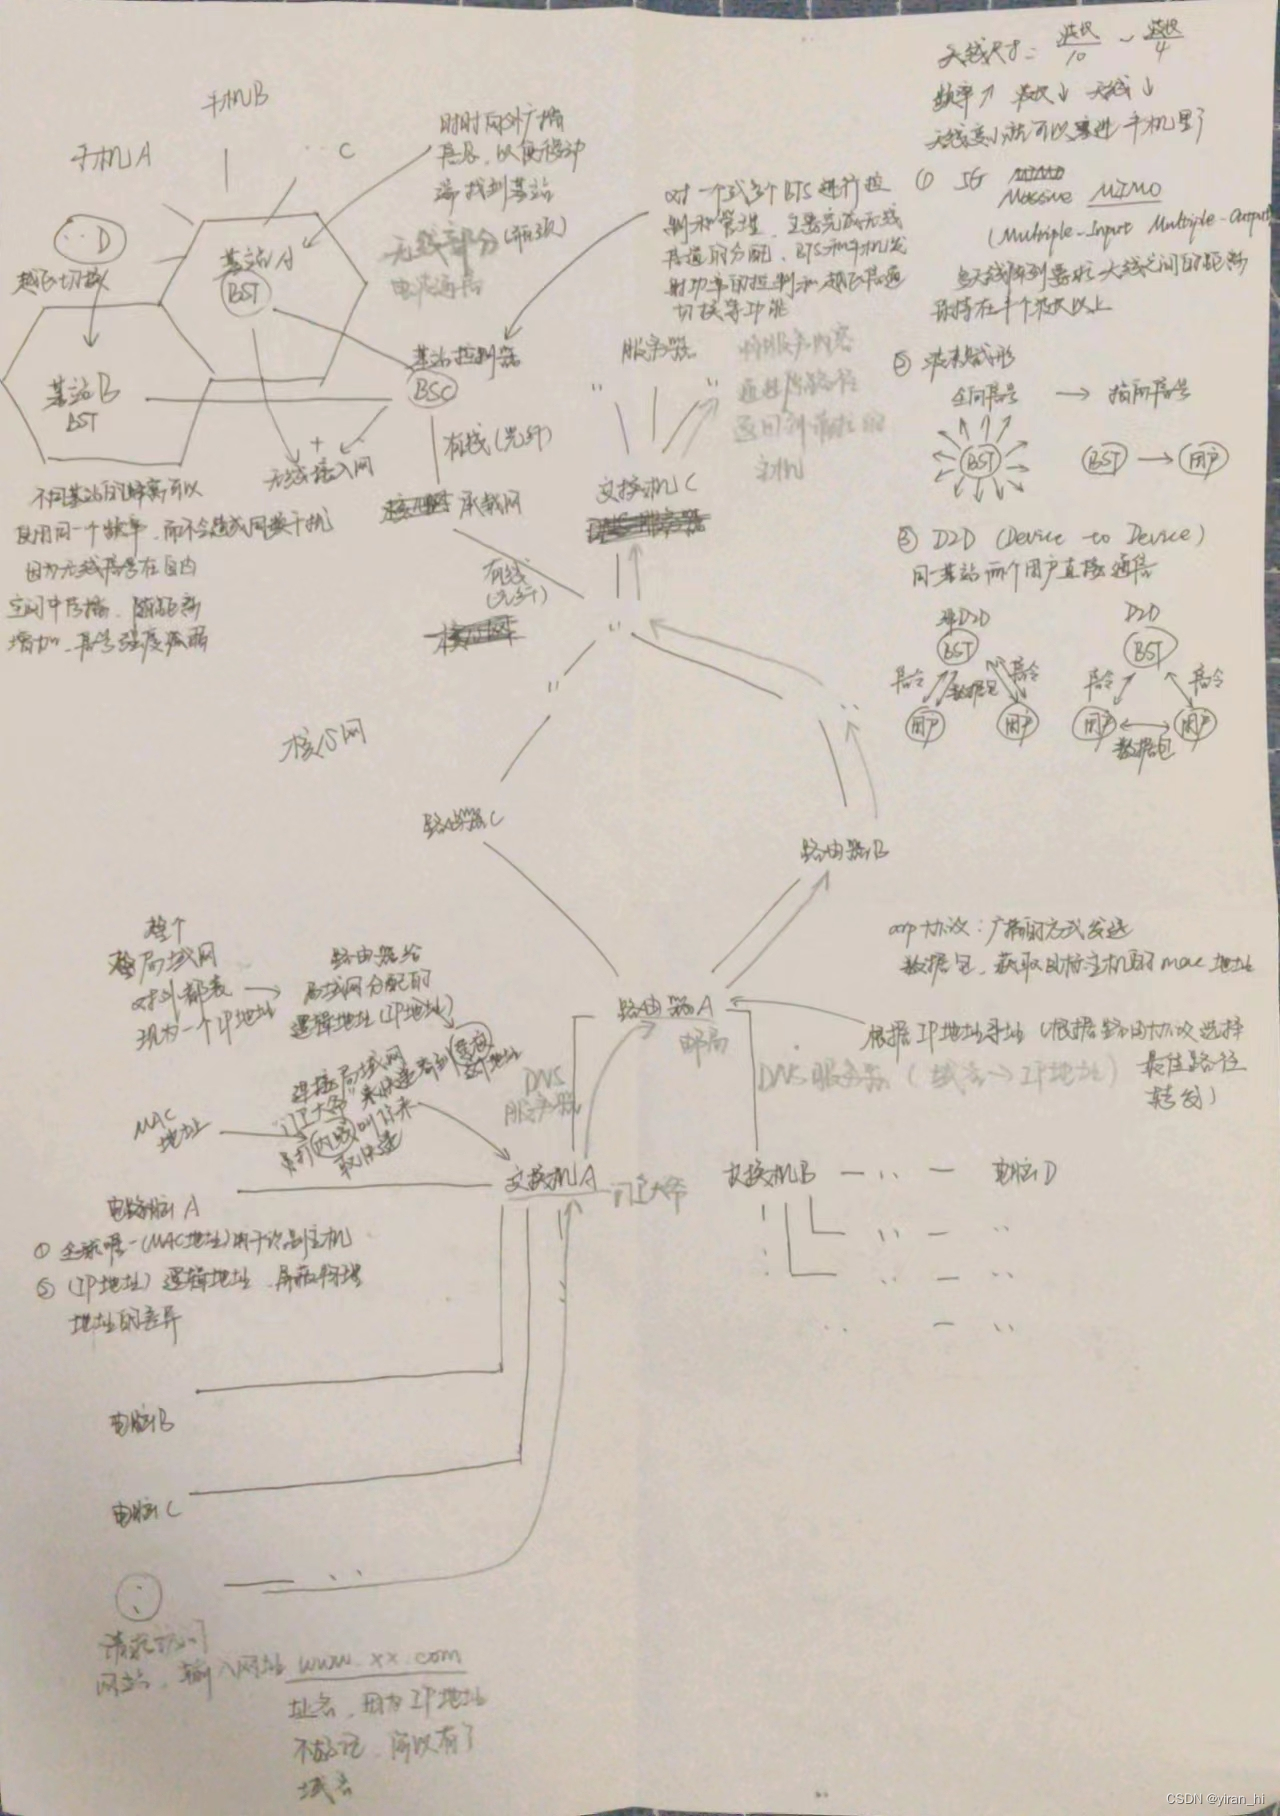 天线尺寸 = 波长/10 ~ 波长/4
频率↑ 波长↓ 天线↓
天线变小就可以塞进手机里了
① 5G
Massive MIMO
(Multiple-Input Multiple-Output
多天线阵列要求天线之间的距离
保持在半个波长以上
② 波束赋形
全向信号 → 指向信号
BST
BST → 用户
③ D2D (Device to Device)
同一基站两个用户直接通信
非D2D
BST
信令 数据包 信令
用户 用户
D2D
BST
信令 信令
用户 用户
数据包
手机B
手机A
C
D
越区切换
时时向外广播
信息,以便移动
端找到基站
无线部分(射频)
电磁通信
基站A
BST
基站B
BST
基站控制器
BSC
对一或多个BTS进行控
制和管理,主要完成无线
信道的分配、BTS和手机发
射功率的控制和越区信道
切换等功能
+
无线接入网
有线(光纤)
承载网
有线
(光纤)
不同基站的距离可以
使用同一个频率,而不会造成同频干扰
因为无线信号在自由
空间中传播,随距离
增加,信号强度减弱
服务器
将服务内容
通过原路径
返回到请求的
主机
交换机C
核心网
路由器C
路由器B
整个
局域网
对外都表
现为一个IP地址
路由器给
局域网分配的
逻辑地址(IP地址)
arp协议:广播的方式发送
数据包,获取目标主机的mac地址
路由器A
邮局
根据IP地址寻址(根据路由协议选择
最佳路径
转发)
DNS服务器(域名→IP地址)
DNS
服务器
连接局域网
门卫大爷
取快递
MAC
地址
交换机A
门卫大爷
交换机B — ·· — 电脑D
电脑A
① 全球唯一(MAC地址)用于识别主机
② (IP地址)逻辑地址,屏蔽物理
地址的差异
电脑B
电脑C
请求访问
网站,输入网址 www.xx.com
不好记,所以有了
域名
CSDN @yiran_hi